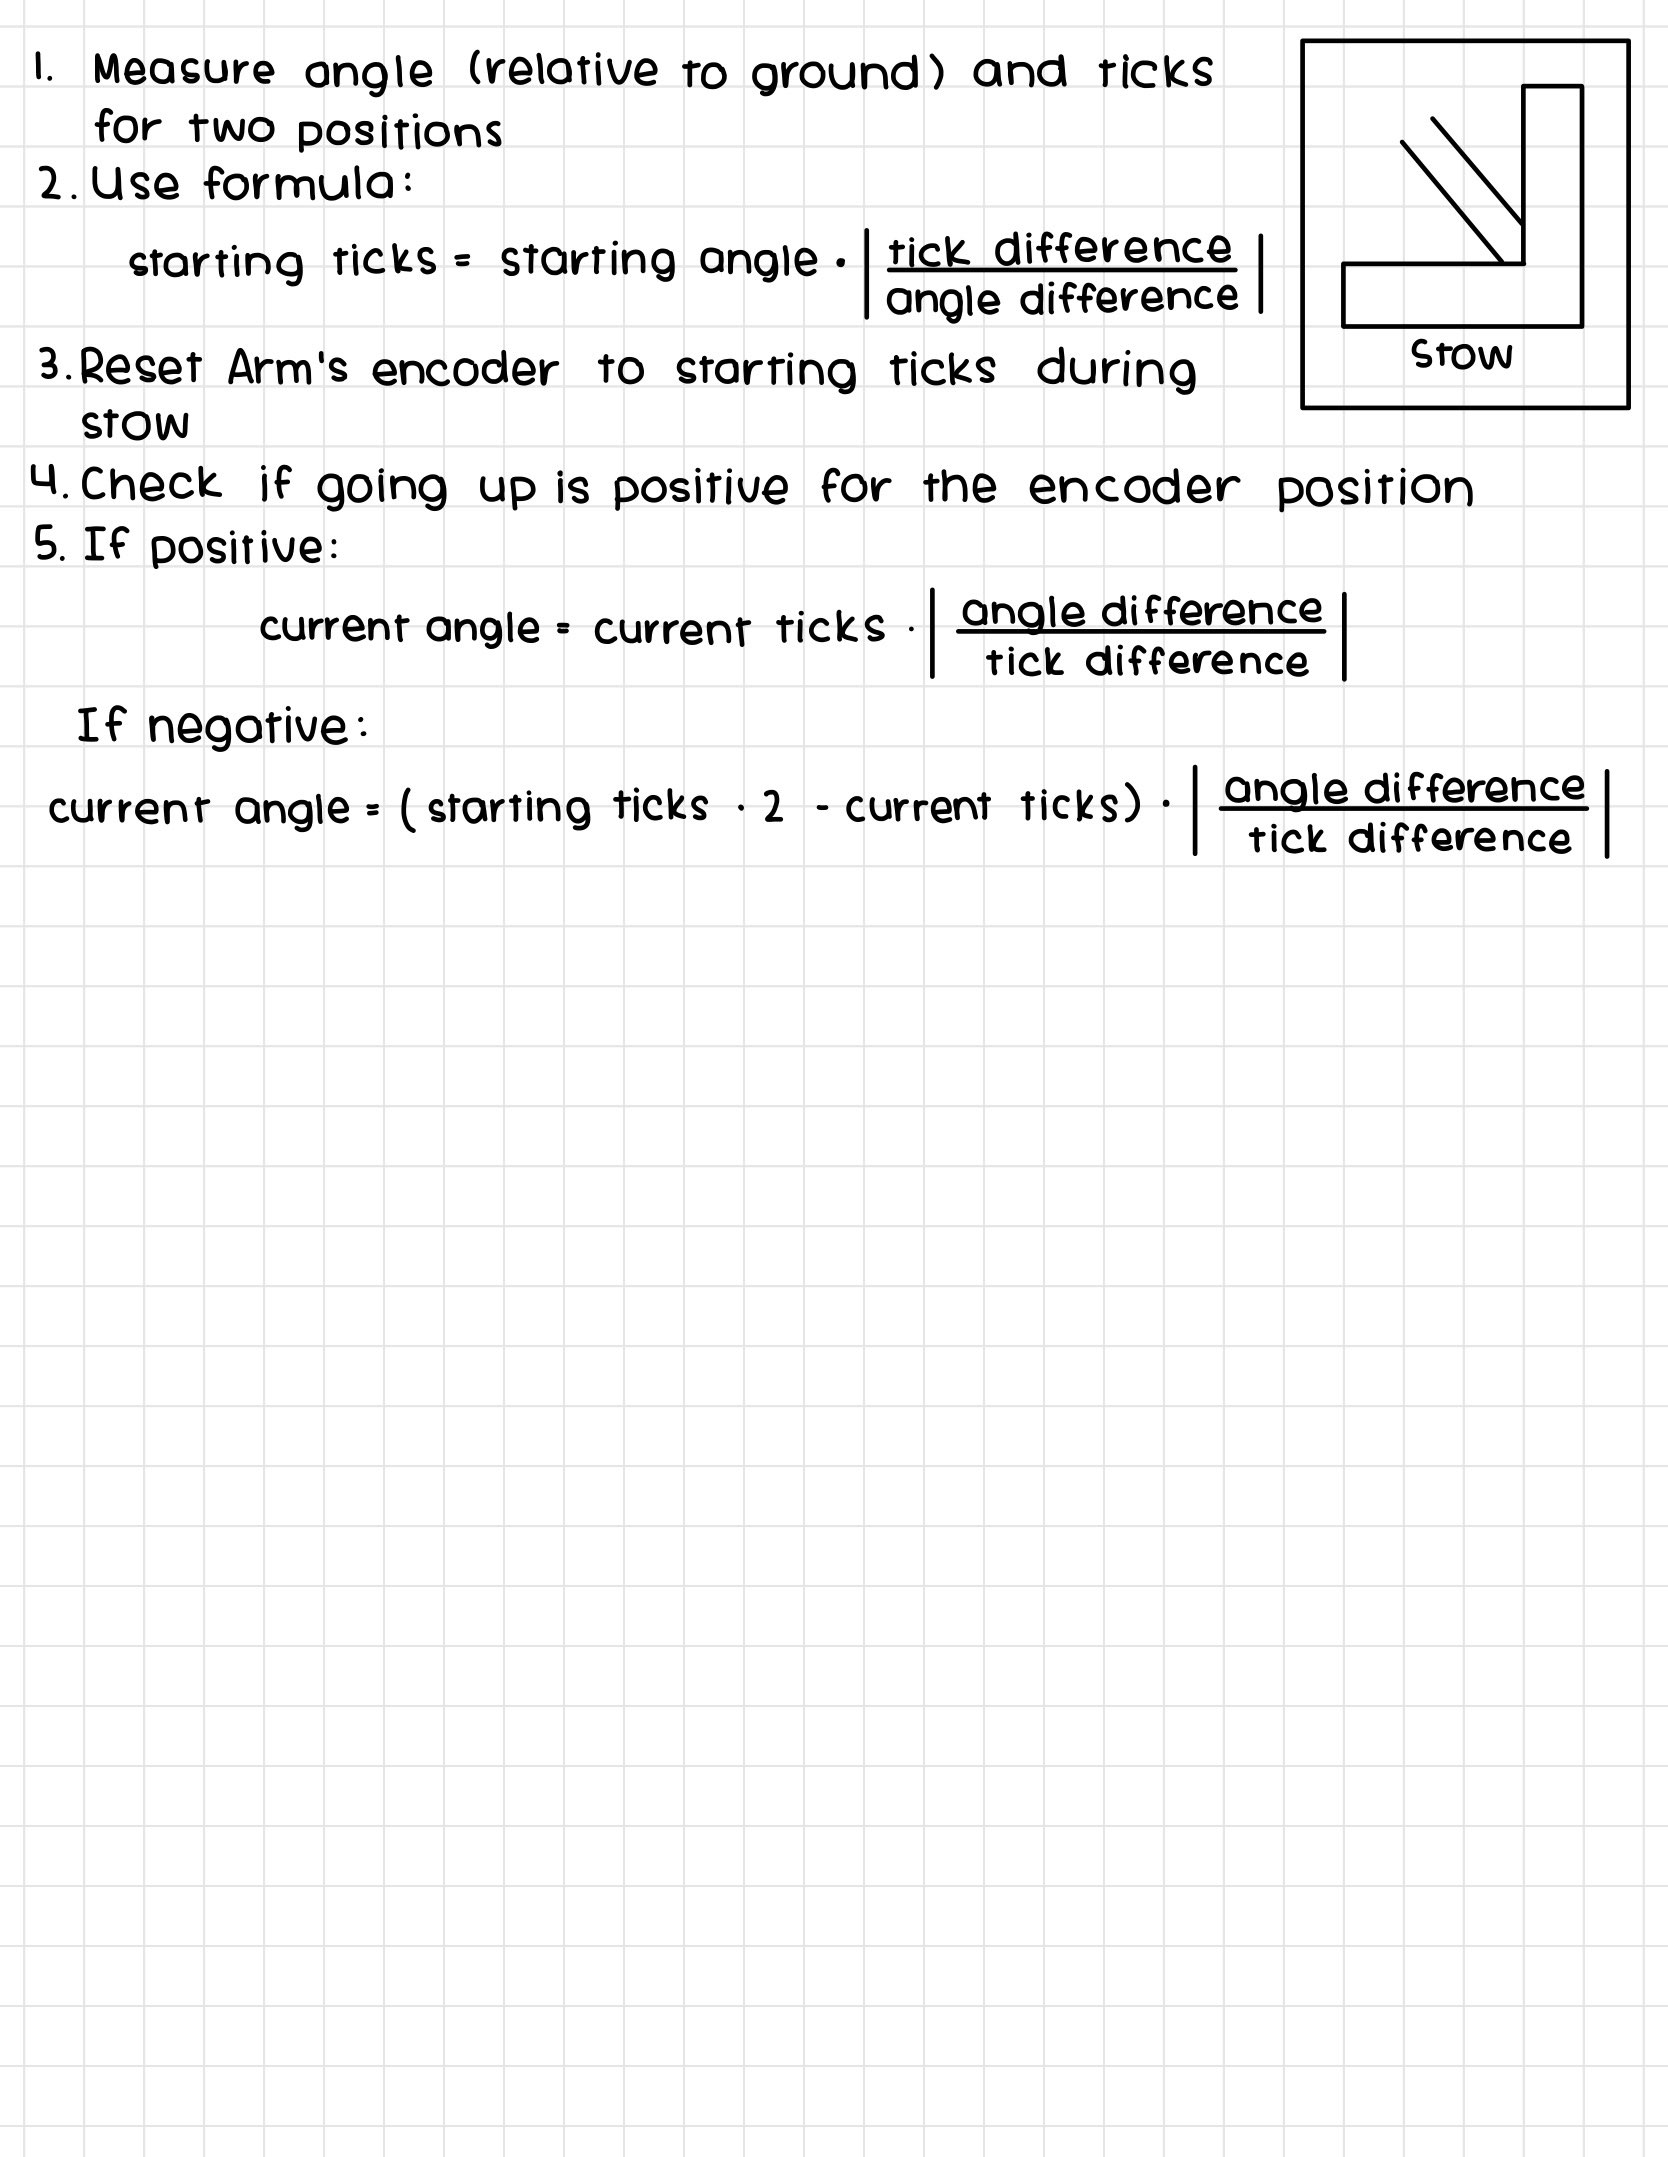 1. Measure angle (relative to ground) and ticks
for two positions
2. Use formula:
starting ticks = starting angle · | tick difference / angle difference |
3. Reset Arm's encoder to starting ticks during
stow
Stow
4. Check if going up is positive for the encoder position
5. If positive:
current angle = current ticks · | angle difference / tick difference |
If negative:
current angle = (starting ticks · 2 - current ticks) · | angle difference / tick difference |